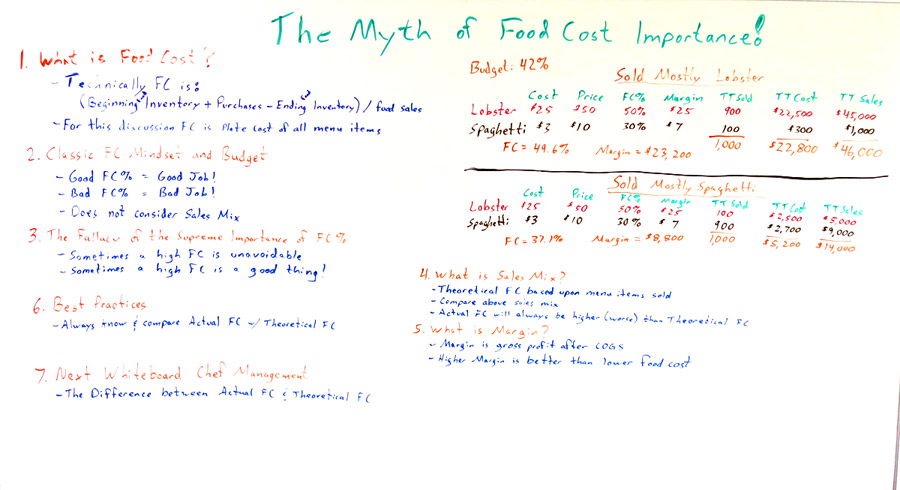 The Myth of Food Cost Importance!
1. What is Food Cost?
- Technically FC is:
(Beginning Inventory + Purchases - Ending Inventory) / food sales
- For this discussion FC is Plate Cost of all menu items
2. Classic FC Mindset and Budget
- Good FC% = Good Job!
- Bad FC% = Bad Job!
- Does not consider Sales Mix
3. The Fallacy of the Supreme Importance of FC%
- Sometimes a high FC is unavoidable
- Sometimes a high FC is a good thing!
6. Best Practices
- Always know & compare Actual FC w/ Theoretical FC
7. Next Whiteboard Chef Management
- The Difference between Actual FC & Theoretical FC
Budget: 42%
Sold Mostly Lobster
Cost Price FC% Margin TT Sold TT Cost TT Sales
Lobster $25 $50 50% $25 900 $22,500 $45,000
Spaghetti $3 $10 30% $7 100 $300 $1,000
FC = 49.6% Margin = $23,200 1,000 $22,800 $46,000
Sold Mostly Spaghetti
Cost Price FC% Margin TT Sold TT Cost TT Sales
Lobster $25 $50 50% $25 100 $2,500 $5,000
Spaghetti $3 $10 30% $7 900 $2,700 $9,000
FC = 37.1% Margin = $8,800 1,000 $5,200 $14,000
4. What is Sales Mix?
- Theoretical FC based upon menu items sold
- Compare above sales mix
- Actual FC will always be higher (worse) than Theoretical FC
5. What is Margin?
- Margin is gross profit after COGS
- Higher Margin is better than lower food cost